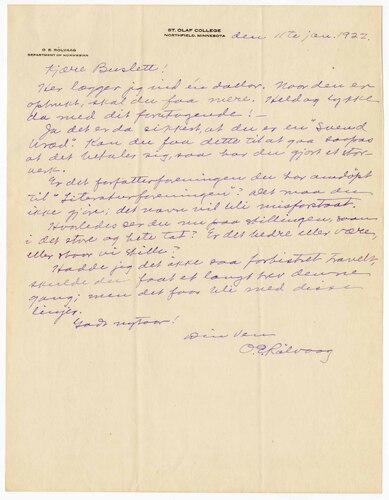 ST. OLAF COLLEGE
NORTHFIELD, MINNESOTA
O. E. RÖLVAAG
DEPARTMENT OF NORWEGIAN
den 11te jan. 1922.
Kjære Buslett!
Her lægger jeg ind én dollar. Naar den er
opbrukt, skal du faa mere. Held og lykke
da med dit foretagende! —
Ja det er da sikkert, at du er en "Svend
Uræd". Kan du faa dette til at gaa saapas
at det betales sig, saa har du gjort et stor-
verk.
Er det forfatterforeningen du har omdøpt
til "Literaturforeningen"? Det maa du
ikke gjøre; det navn vil bli misforstaat.
Hvorledes ser du nu paa stillingen, saan
i det store og hele tat? Er det bedre eller værre,
eller staar vi stille?
Hadde jeg det ikke saa forbistret travelt,
skulde du faat et langt brev denne
gang; men det faar bli med disse
linjer.
Godt nytaar!
Din ven
O. E. Rölvaag